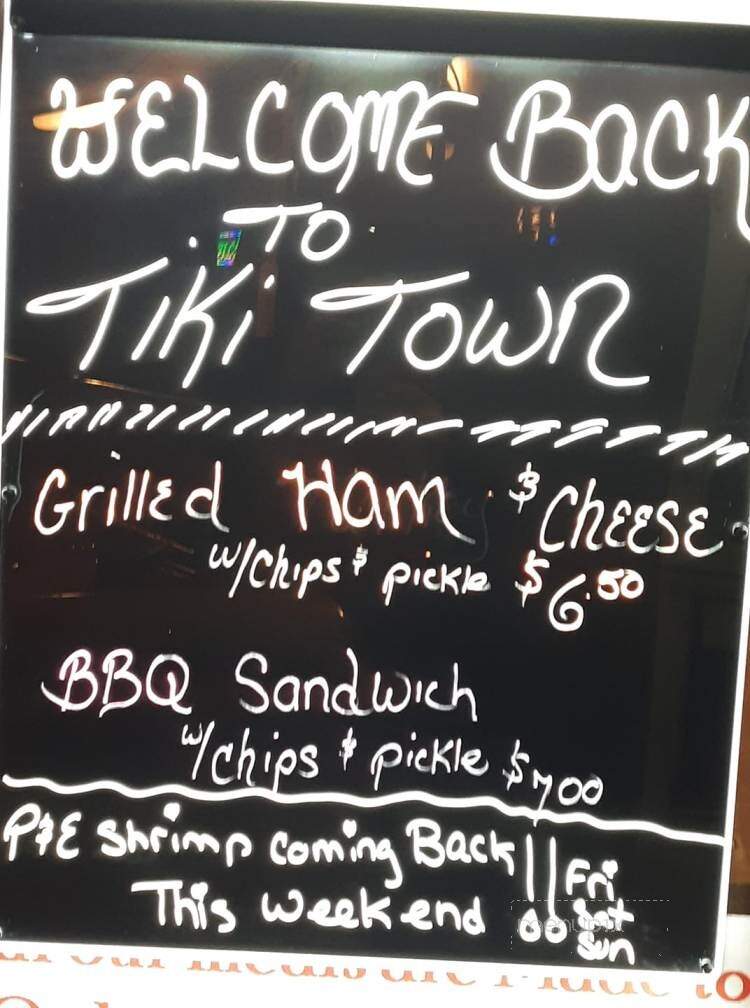 WELCOME BACK
TO
TIKI TOWN
Grilled Ham & CHEESE
w/chips & pickle $6.50
BBQ Sandwich
w/chips & pickle $7.00
P&E Shrimp Coming Back!!
This Weekend
Fri
Sat
Sun
our meals are Made to